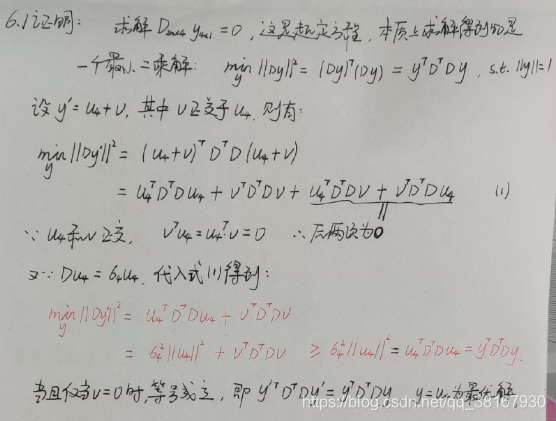 6.1证明: 求解 D₂ₙₓ₄ y₄ₓ₁ = 0, 这是超定方程, 本质上求解得到的是
一个最小二乘解: min_y ||Dy||² = (Dy)ᵀ(Dy) = yᵀDᵀDy, s.t. ||y||=1
设 y' = u₄ + v, 其中 v 正交于 u₄, 则有:
min_y ||Dy'||² = (u₄+v)ᵀDᵀD(u₄+v)
= u₄ᵀDᵀDu₄ + vᵀDᵀDv + u₄ᵀDᵀDv + vᵀDᵀDu₄ (1)
∵ u₄和v正交, vᵀu₄ = u₄ᵀv = 0 ∴ 后两项为0
又∵ Du₄ = 6₄u₄, 代入式(1)得到:
min_y ||Dy'||² = u₄ᵀDᵀDu₄ + vᵀDᵀDv
= 6₄²||u₄||² + vᵀDᵀDv ≥ 6₄²||u₄||² = u₄ᵀDᵀDu₄ = yᵀDᵀDy.
当且仅当v=0时,等号成立, 即 y'ᵀDᵀDy' = yᵀDᵀDy y=u₄为最优解
https://blog.csdn.net/qq_38167930